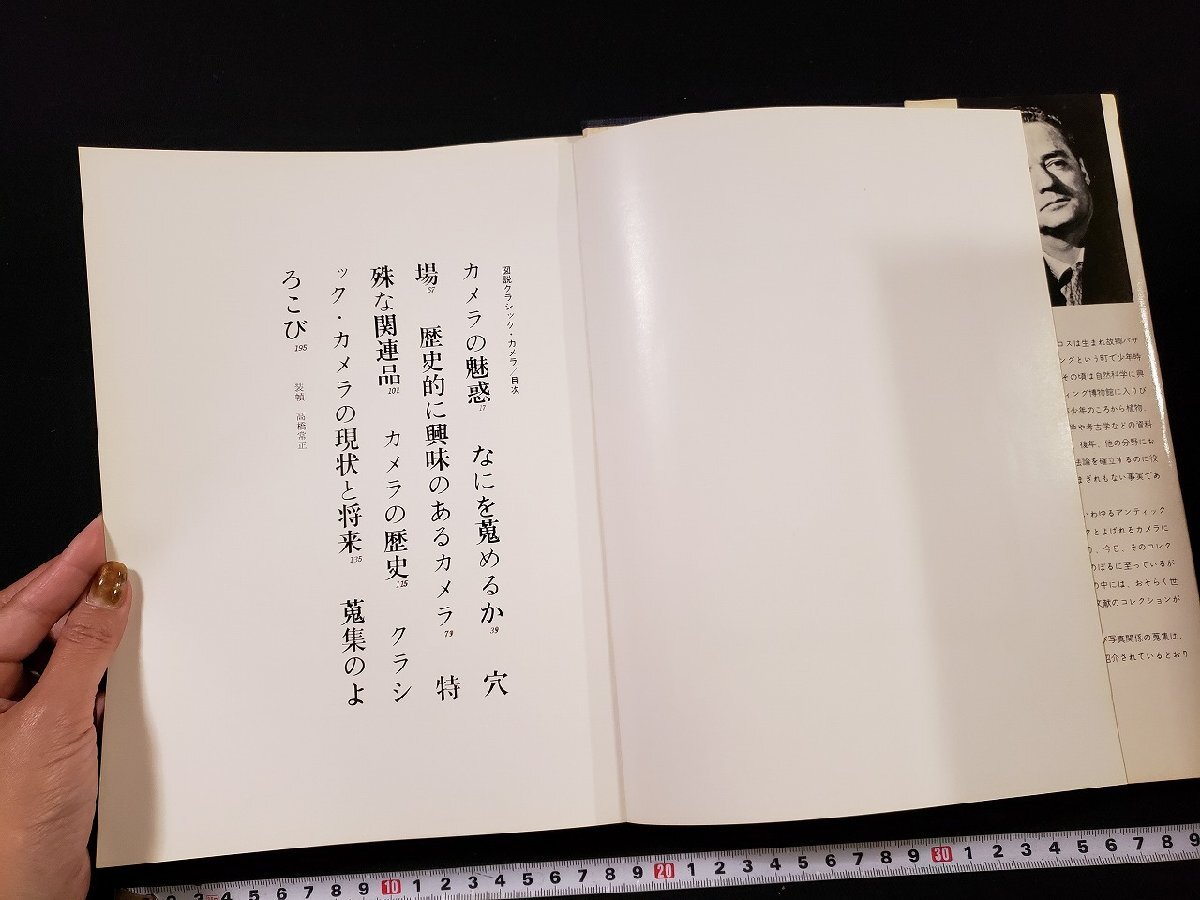 図説クラシック・カメラ／目次
カメラの魅惑17 なにを蒐めるか39 穴
場57 歴史的に興味のあるカメラ79 特
殊な関連品101 カメラの歴史115 クラシ
ック・カメラの現状と将来135 蒐集のよ
ろこび195
装幀 高橋常正
コスは生まれ故郷パサ
ングという町で少年時
その頃は自然科学に興
ィング博物館に入りび
は少年のころから植物、
物や考古学などの資料
後年、他の分野にお
法論を確立するのに役
まぎれもない事実であ
いわゆるアンティック
クとよばれるカメラに
り、今で、そのコレク
のぼるに至っているが
の中には、おそらく世
文献のコレクションが
写真関係の蒐集は、
紹介されているとおり
2 3 4 5 6 7 8 9 10 1 2 3 4 5 6 7 8 9 20 1 2 3 4 5 6 7 8 9 30 1 2 3 4 5 6 7 8 9